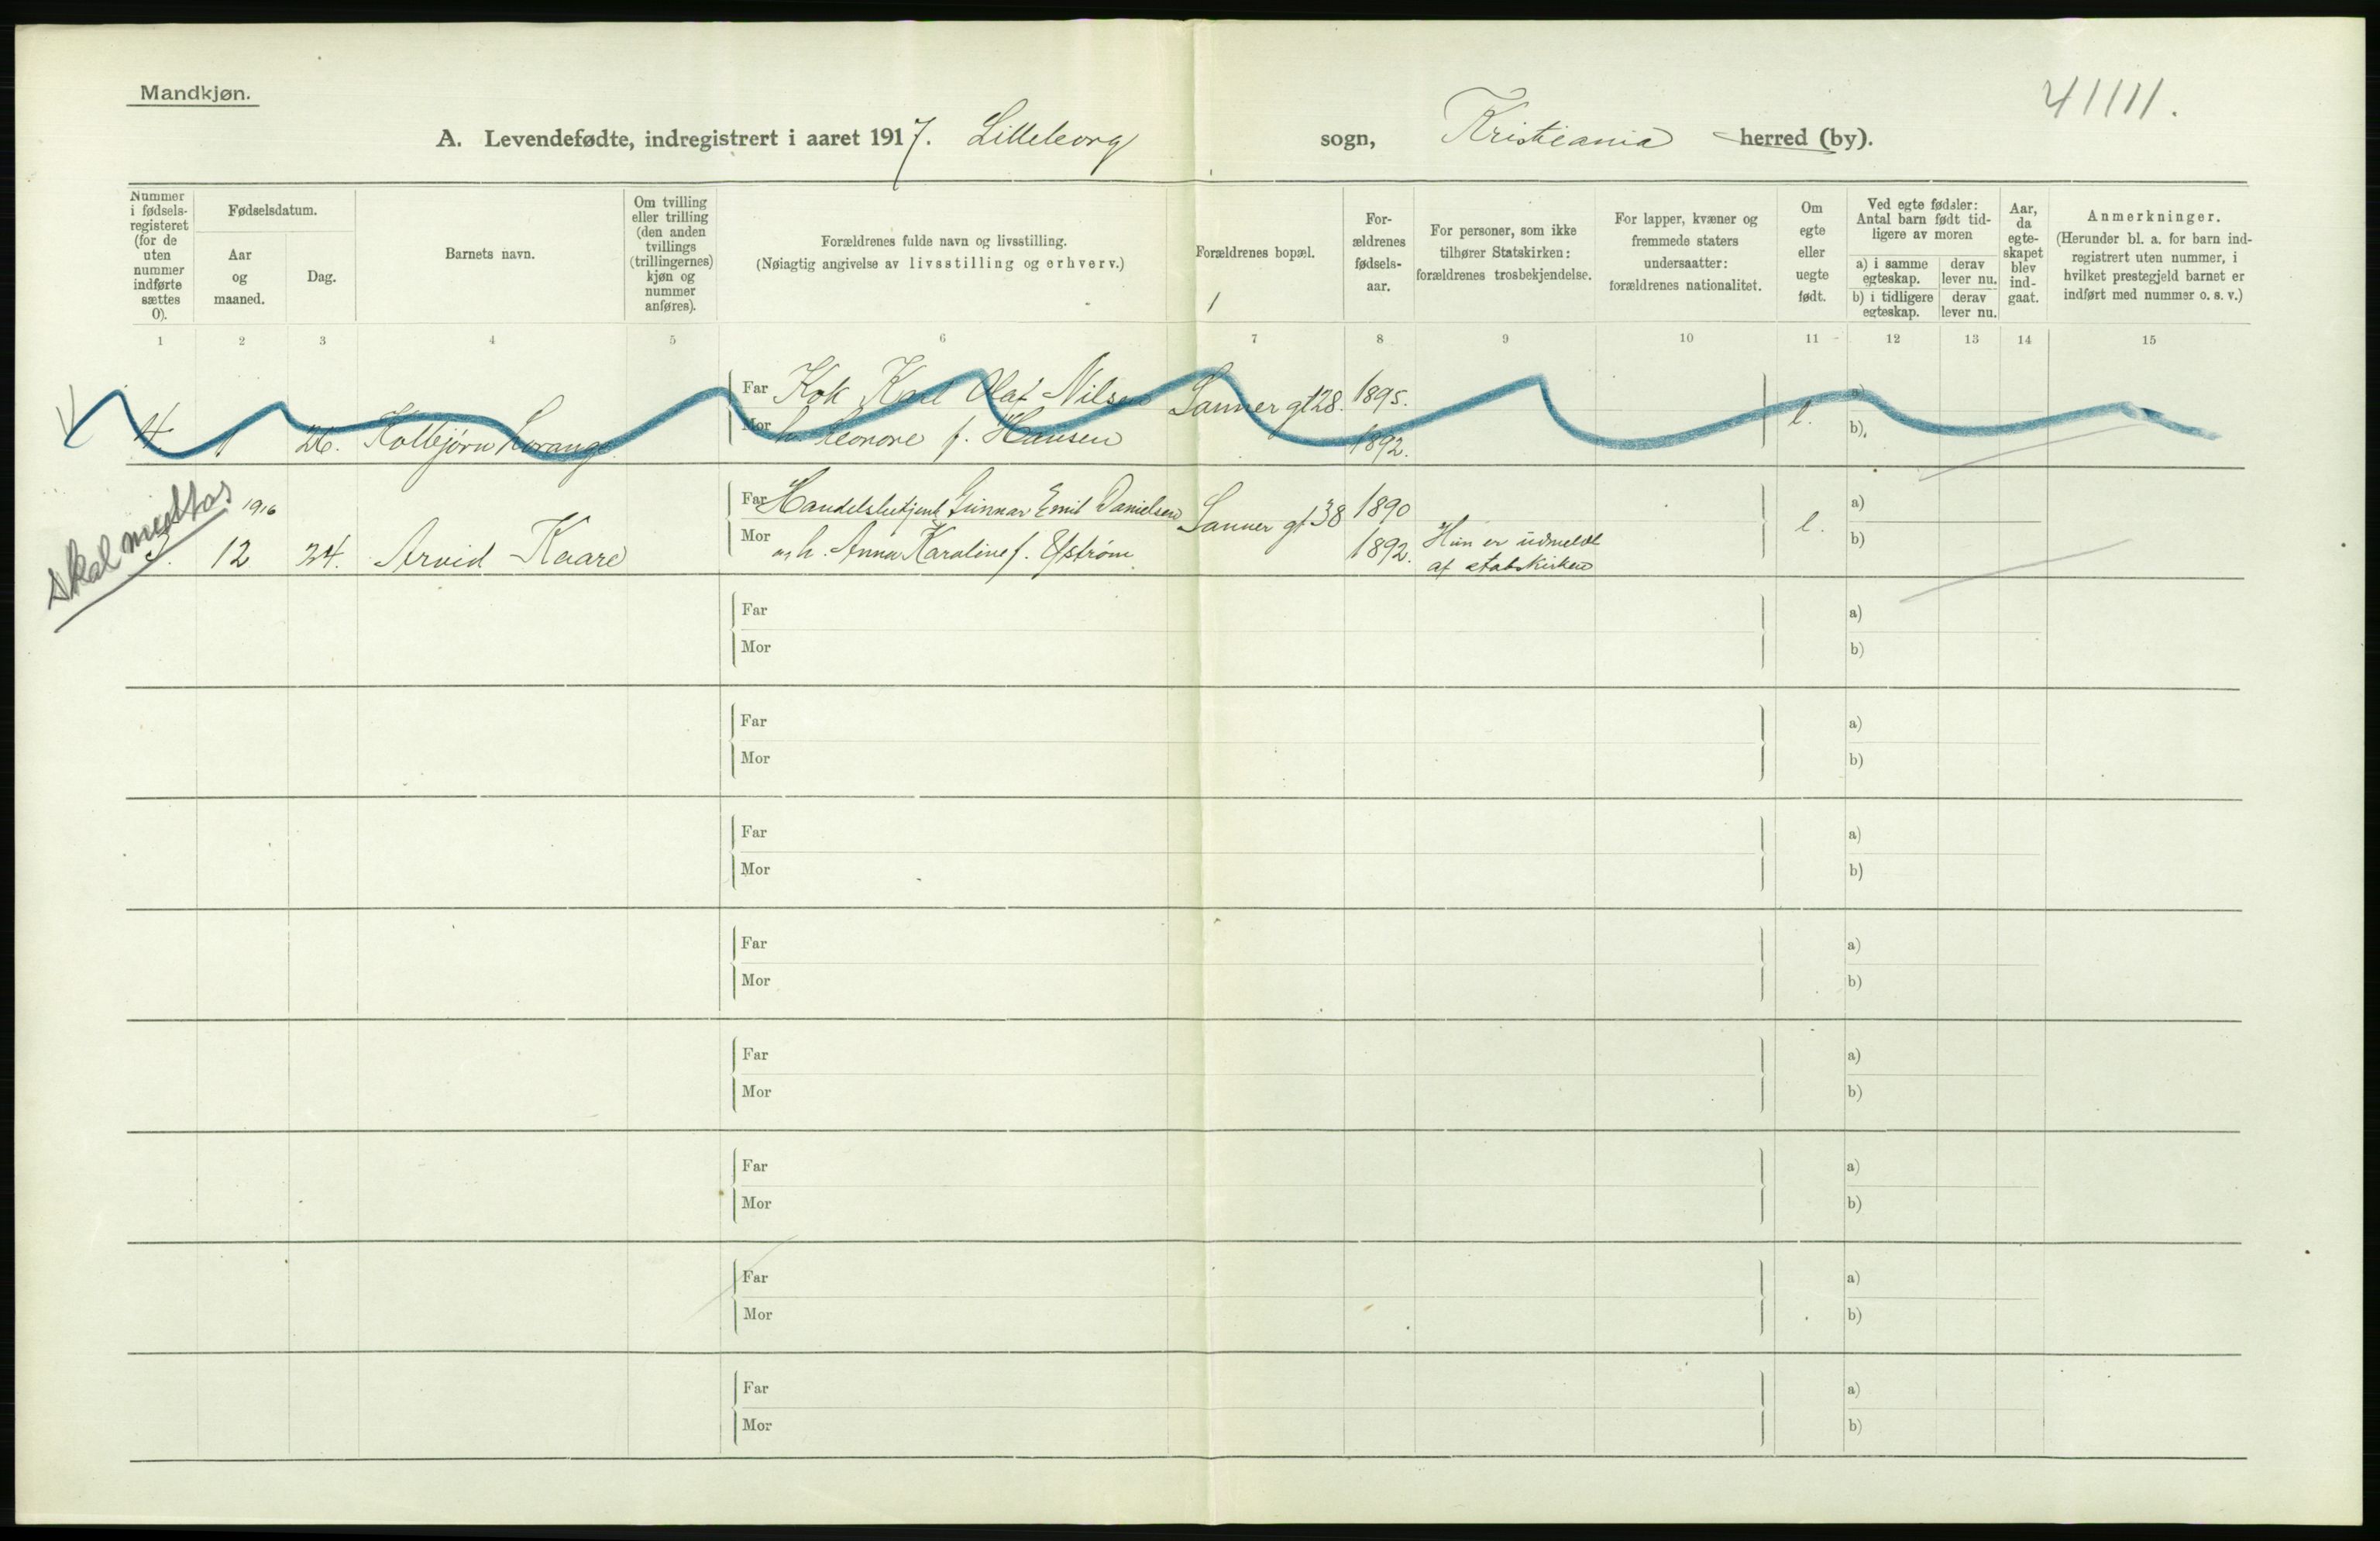 Mandkjøn.
41111.
A. Levendefødte, indregistrert i aaret 1917. Lilleborg sogn, Kristiania herred (by).
Nummer i fødsels-registeret (for de uten nummer indførte sættes 0).
Fødselsdatum.
Aar og maaned.
Dag.
Barnets navn.
Om tvilling eller trilling (den anden tvillings (trillingernes) kjøn og nummer anføres).
Forældrenes fulde navn og livsstilling.
(Nøiagtig angivelse av livsstilling og erhverv.)
Forældrenes bopæl.
For-ældrenes fødsels-aar.
For personer, som ikke tilhører Statskirken: forældrenes trosbekjendelse.
For lapper, kvæner og fremmede staters undersaatter: forældrenes nationalitet.
Om egte eller uegte født.
Ved egte fødsler: Antal barn født tid-ligere av moren
a) i samme egteskap.
derav lever nu.
b) i tidligere egteskap.
derav lever nu.
Aar, da egte-skapet blev ind-gaat.
Anmerkninger.
(Herunder bl. a. for barn ind-registrert uten nummer, i hvilket prestegjeld barnet er indført med nummer o. s. v.)
1 2 3 4 5 6 7 8 9 10 11 12 13 14 15
Far Kok Karl Olaf Nilsen Sanner gt 28. 1895. a)
4 1 26. Kolbjørn Lorange. Mor h. Leonore f. Hansen 1892. e. b)
skal medtas
1916 Far Handelsbetjent Gunnar Emil Danielsen Sanner gt 38 1890 e. a)
3. 12 24. Arvid Kaare Mor og h. Anna Karoline f. Øfstrøm. 1892. Hun er udmeldt b)
af statskirken
Far a)
Mor b)
Far a)
Mor b)
Far a)
Mor b)
Far a)
Mor b)
Far a)
Mor b)
Far a)
Mor b)
Far a)
Mor b)
Far a)
Mor b)